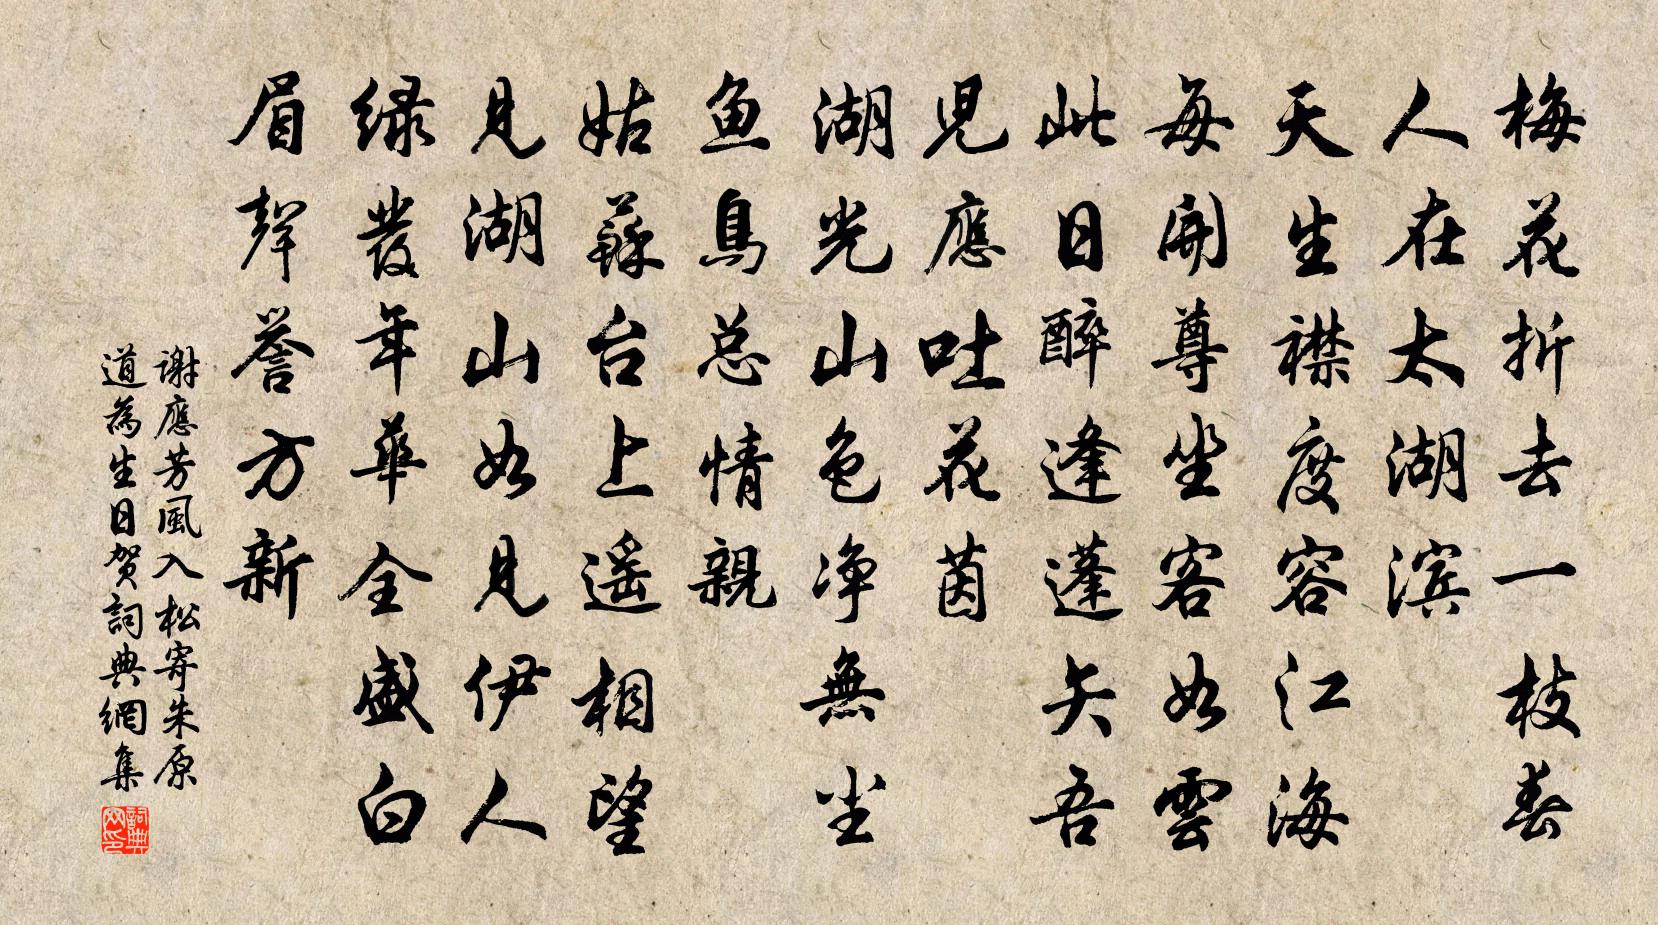 梅花折去一枝春
人在太湖滨
天生襟度容江海
每開尊坐客如雲
此日醉逢蓬矢吾
兒應吐花茵
湖光山色净無尘
鱼鳥总情親
姑蘇台上遥相望
見湖山如見伊人
绿發年華全盛白
眉聲誉方新
謝應芳風入松寄朱原
道為生日贺詞典網集
詞典网印